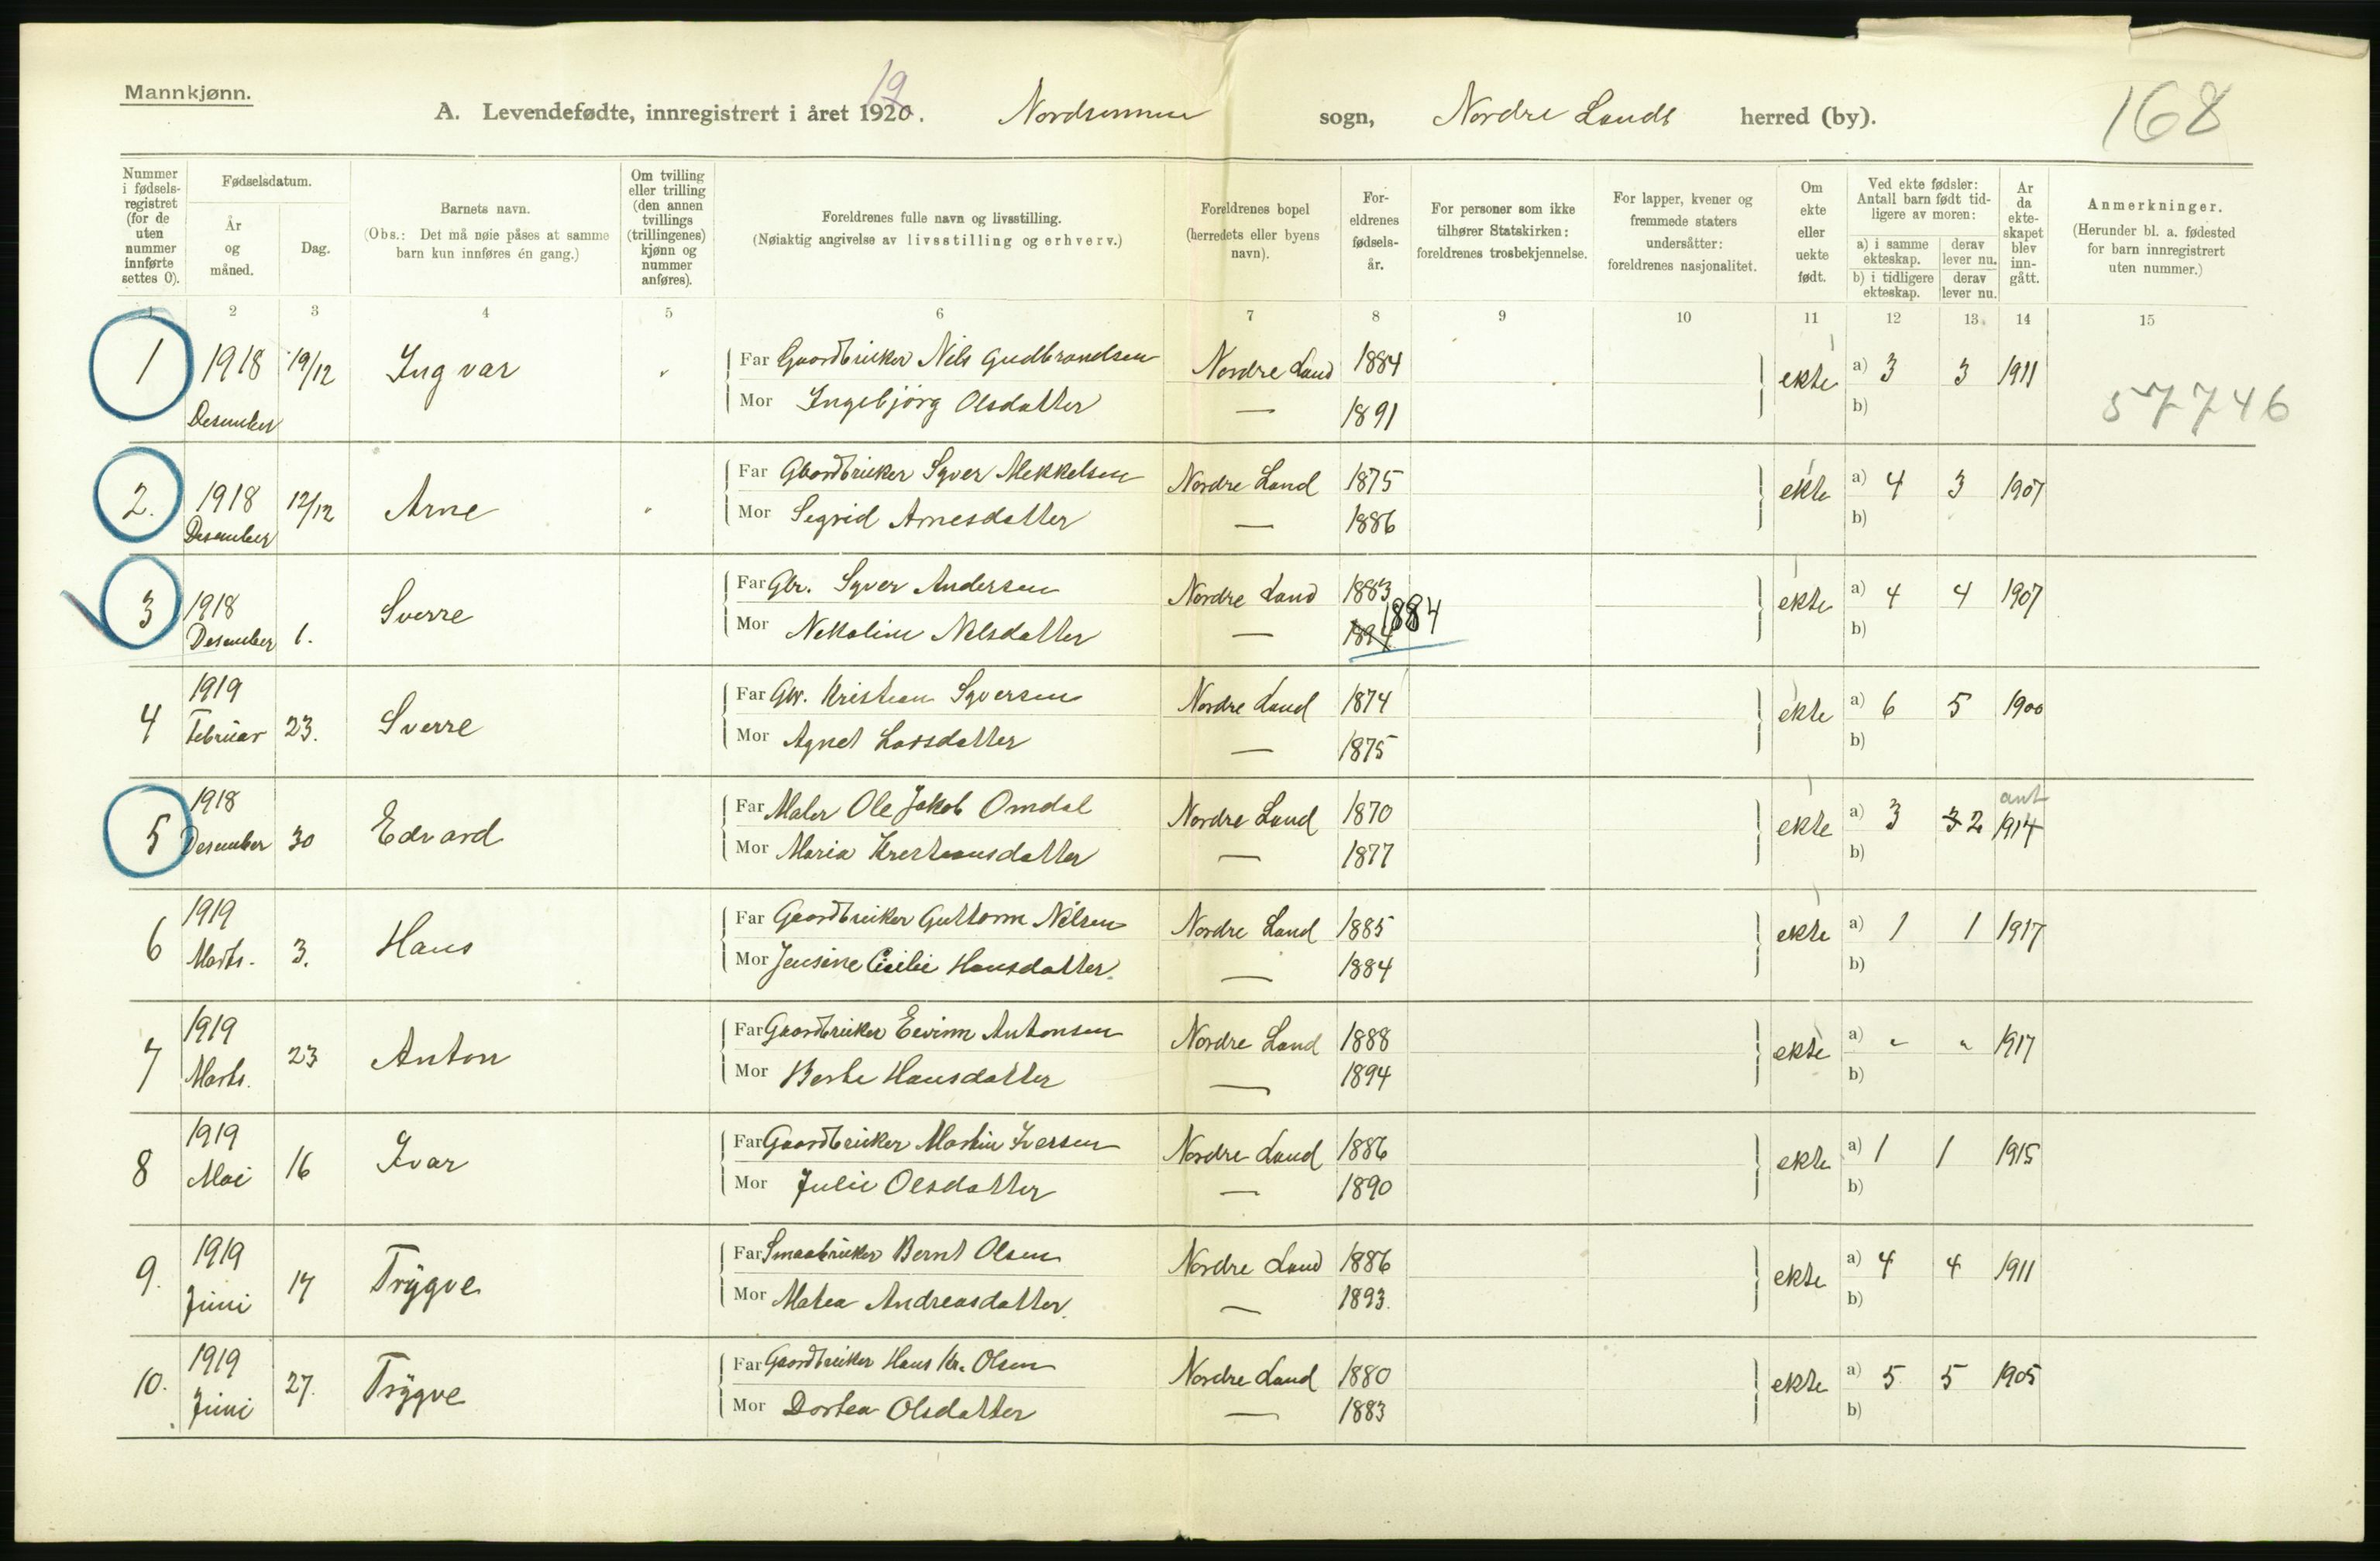 Mannkjønn.
A. Levendefødte, innregistrert i året 1920. 19 sogn, Nordre Lands herred (by). 168
Nummer i fødsels-registret (for de uten nummer innførte settes 0).
Fødselsdatum.
År og måned.
Dag.
Barnets navn.
(Obs.: Det må nøie påses at samme barn kun innføres én gang.)
Om tvilling eller trilling (den annen tvillings (trillingenes) kjønn og nummer anføres).
Foreldrenes fulle navn og livsstilling.
(Nøiaktig angivelse av livsstilling og erhverv.)
Foreldrenes bopel (herredets eller byens navn).
For-eldrenes fødsels-år.
For personer som ikke tilhører Statskirken: foreldrenes trosbekjennelse.
For lapper, kvener og fremmede staters undersåtter: foreldrenes nasjonalitet.
Om ekte eller uekte født.
Ved ekte fødsler: Antall barn født tid-ligere av moren:
a) i samme ekteskap.
derav lever nu.
b) i tidligere ekteskap.
derav lever nu.
Ar da ekte-skapet blev inn-gått.
Anmerkninger.
(Herunder bl. a. fødested for barn innregistrert uten nummer.)
1 2 3 4 5 6 7 8 9 10 11 12 13 14 15
1 1918 Desember 19/12 Ingvar
Far Gaardbruker Nils Gudbrandsen Nordre Land 1884 ekte a) 3 3 1911
Mor Ingebjørg Olsdatter — 1891 b) 57746
2. 1918 Desember 12/12 Arne
Far Gaardbruker Syver Mekkelsen Nordre Land 1875 ekte a) 4 3 1907
Mor Segrid Arnesdatter — 1886 b)
3 1918 Desember 6. Sverre
Far Gbr. Syver Andersen Nordre Land 1883 ekte a) 4 4 1907
Mor Nekoline Nilsdatter — 1894 1884 b)
4 1919 Februar 23. Sverre
Far Gbr. Kristian Syversen Nordre Land 1874 ekte a) 6 5 1900
Mor Agnet Larsdatter — 1875 b)
5 1918 Desember 30 Edvard
Far Maler Ole Jakob Omdal Nordre Land 1870 ekte a) 3 3 2 ant 1914
Mor Maria Krestiansdatter — 1877 b)
6 1919 Marts. 3. Hans
Far Gaardbruker Guttorm Nilsen Nordre Land 1885 ekte a) 1 1 1917
Mor Jensine Cicilie Hansdatter. — 1884 b)
7 1919 Marts. 23 Anton
Far Gaardbruker Eevinn Antonsen Nordre Land 1888 ekte a) " " 1917
Mor Berte Hansdatter — 1894 b)
8 1919 Mai 16 Ivar
Far Gaardbruker Martin Iversen Nordre Land 1886 ekte a) 1 1 1915
Mor Julie Olsdatter — 1890 b)
9. 1919 Juni 17 Trygve
Far Smaabruker Bernt Olsen Nordre Land 1886 ekte a) 4 4 1911
Mor Matea Andreasdatter. — 1893. b)
10. 1919 Juni 27. Trygve
Far Gaardbruker Hans Kr. Olsen Nordre Land 1880 ekte a) 5 5 1905
Mor Dortea Olsdatter — 1883 b)